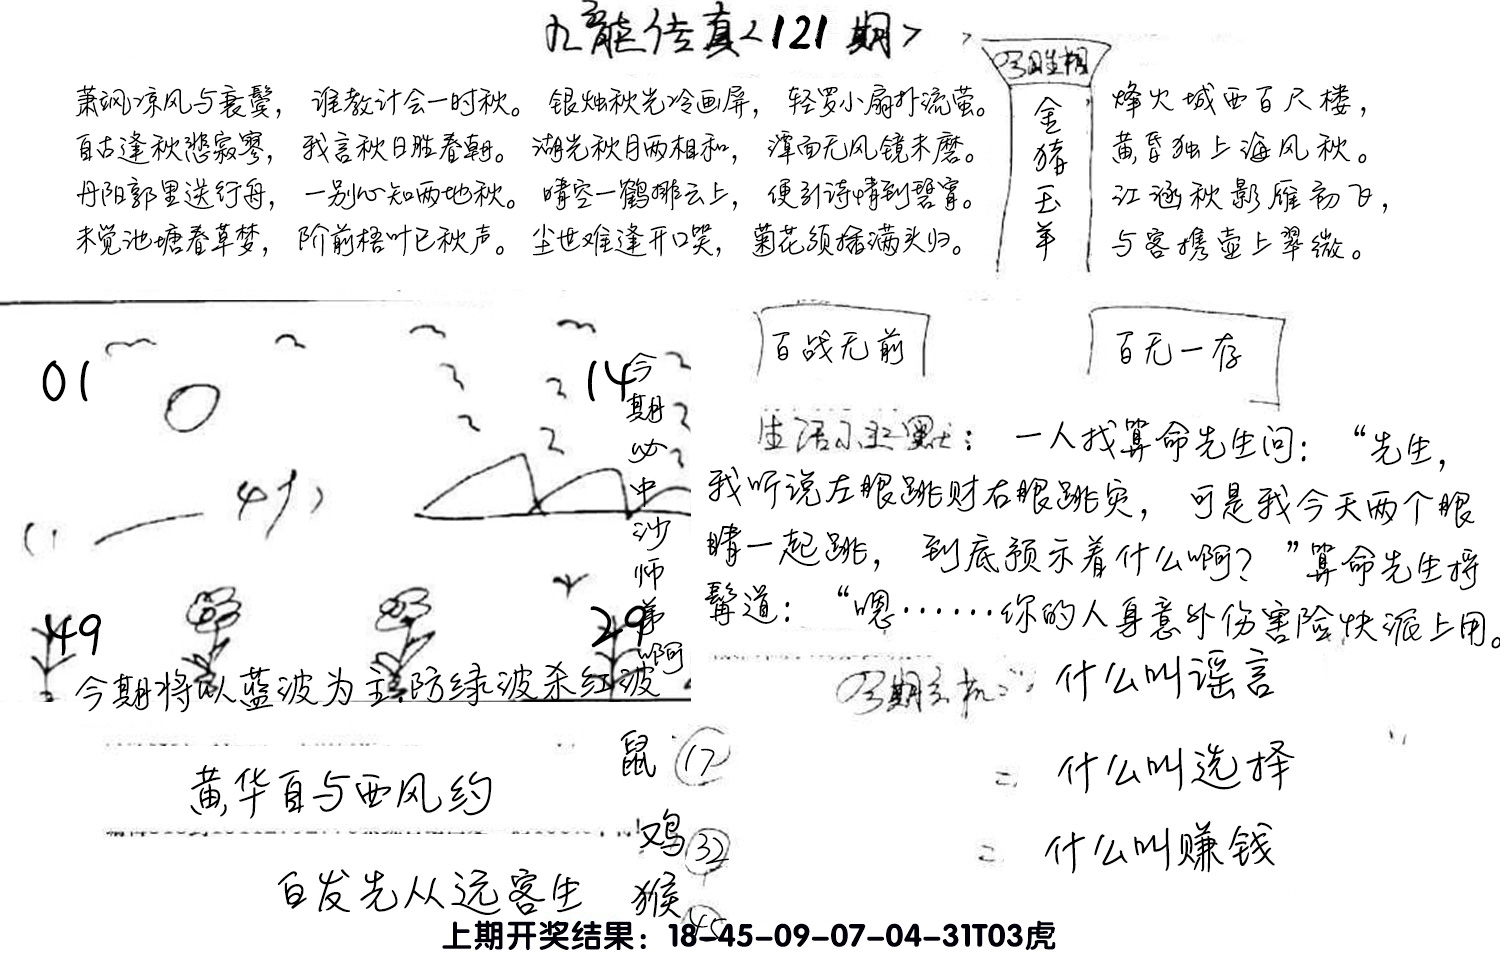 九龙传真<121期>
萧飒凉风与衰鬓，谁教计会一时秋。银烛秋光冷画屏，轻罗小扇扑流萤。
自古逢秋悲寂寥，我言秋日胜春朝。湖光秋月两相和，潭面无风镜未磨。
丹阳郭里送行舟，一别心知两地秋。晴空一鹤排云上，便引诗情到碧霄。
未觉池塘春草梦，阶前梧叶已秋声。尘世难逢开口笑，菊花须插满头归。
金猪玉羊
烽火城西百尺楼，
黄昏独上海风秋。
江涵秋影雁初飞，
与客携壶上翠微。
01
14
49
29
今期必中沙师弟啊
今期将以蓝波为主防绿波杀红波
百战无前
百无一存
生活小幽默：一人找算命先生问：“先生，
我听说左眼跳财右眼跳灾，可是我今天两个眼
睛一起跳，到底预示着什么啊？”算命先生捋
髯道：“嗯……你的人身意外伤害险快派上用。
今期玄机：什么叫谣言
= 什么叫选择
= 什么叫赚钱
黄华自与西风约
白发先从远客生
鼠 17
鸡 32
猴 45
上期开奖结果：18-45-09-07-04-31T03虎